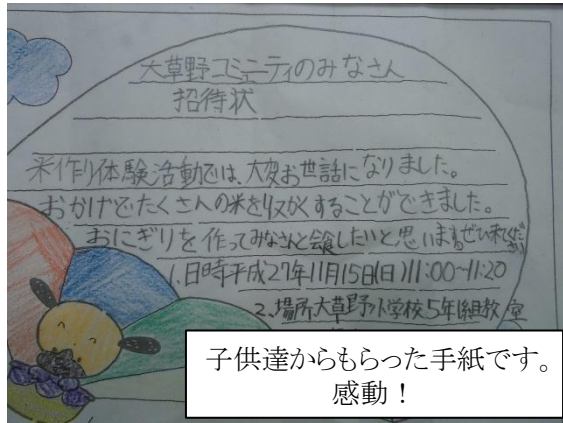 大草野コミュニティのみなさん
招待状
米作り体験活動では、大変お世話になりました。
おかげでたくさんの米を収かくすることができました。
おにぎりを作ってみなさんと会食したいと思います。ぜひ来てください
1.日時平成27年11月15日(日)11:00~11:20
2.場所大草野小学校5年1組教室
子供達からもらった手紙です。
感動！